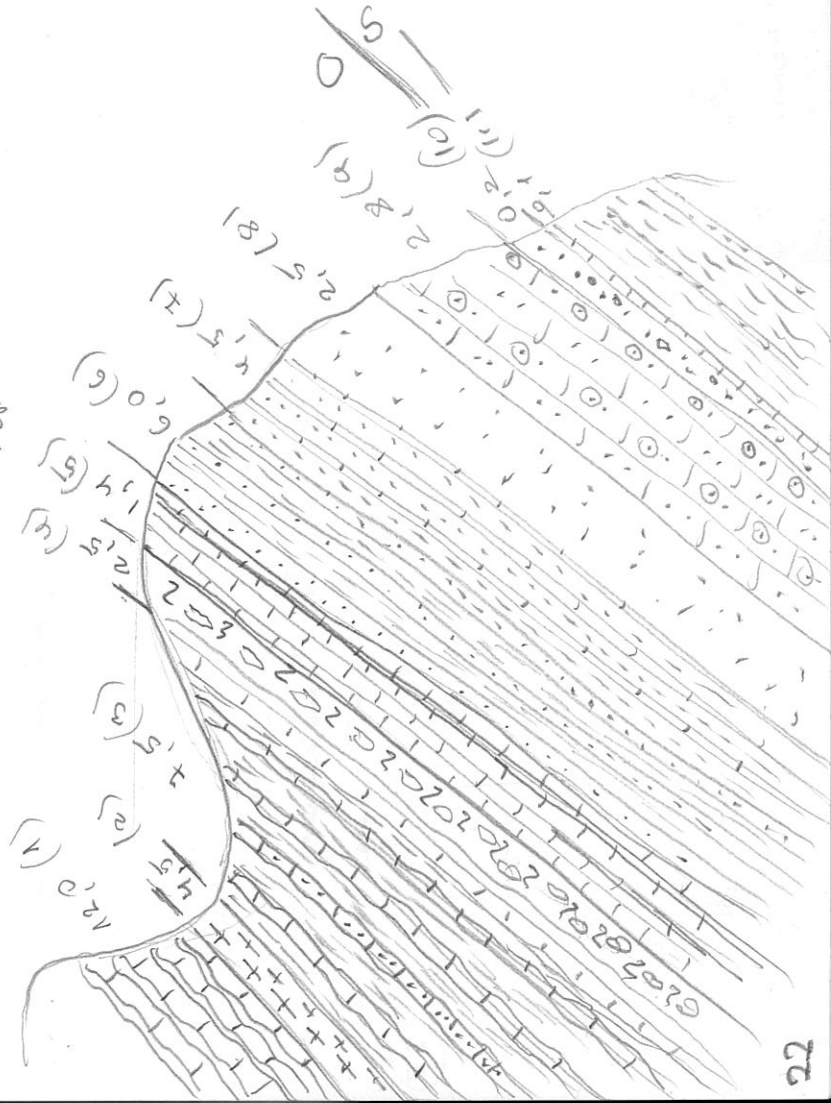 12,0 (1)
4,5 (2)
7,5 (3)
2,5 (4)
1,4 (5)
6,0 (6)
4,5 (7)
2,5 (8)
2,8 (9)
0,2 (10)
(11)
O S
22